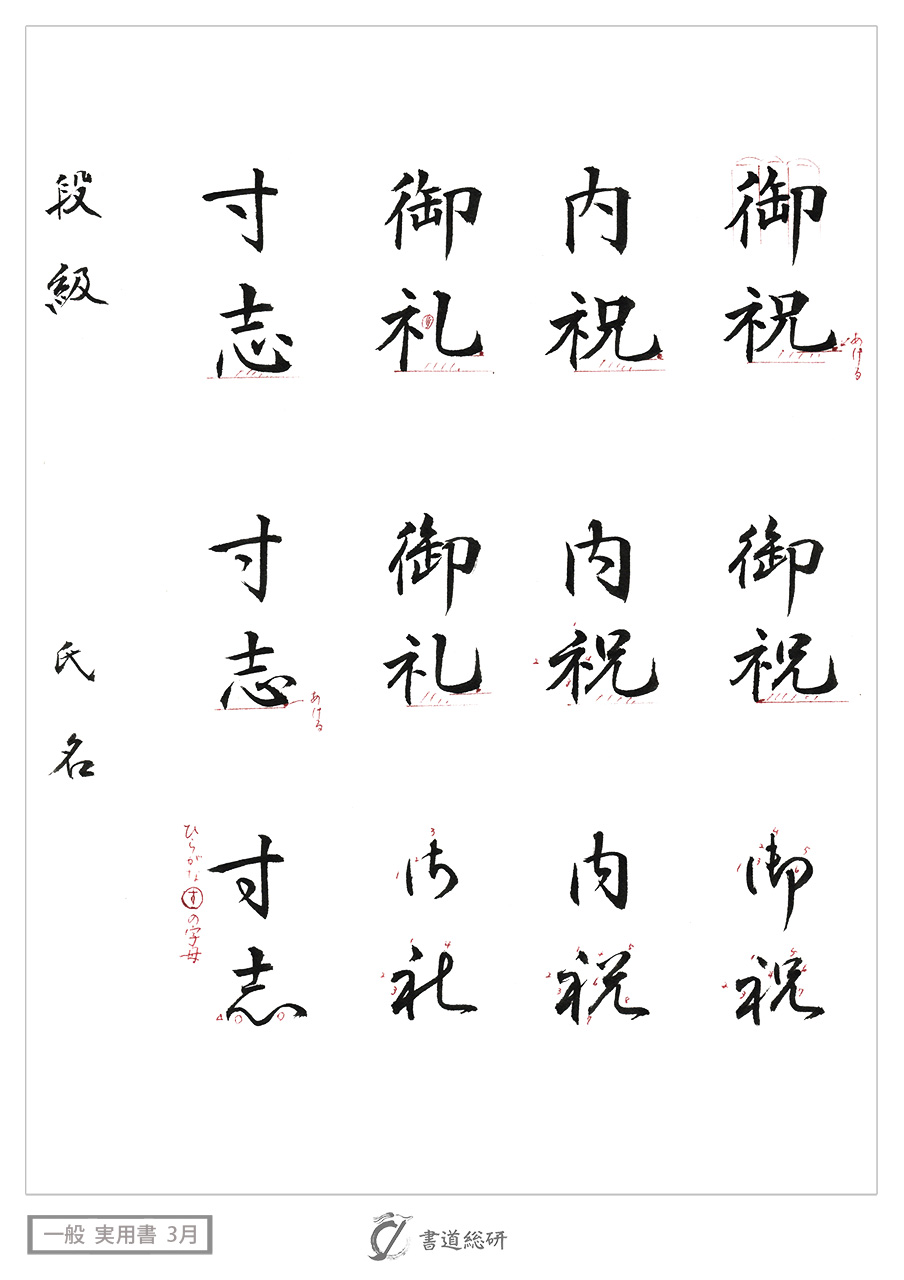 御祝
内祝
御礼
寸志
あける
御祝
内祝
御礼
寸志
あける
御祝
内祝
御礼
寸志
ひらがなすの字母
段級
氏名
一般 実用書 3月
書道総研